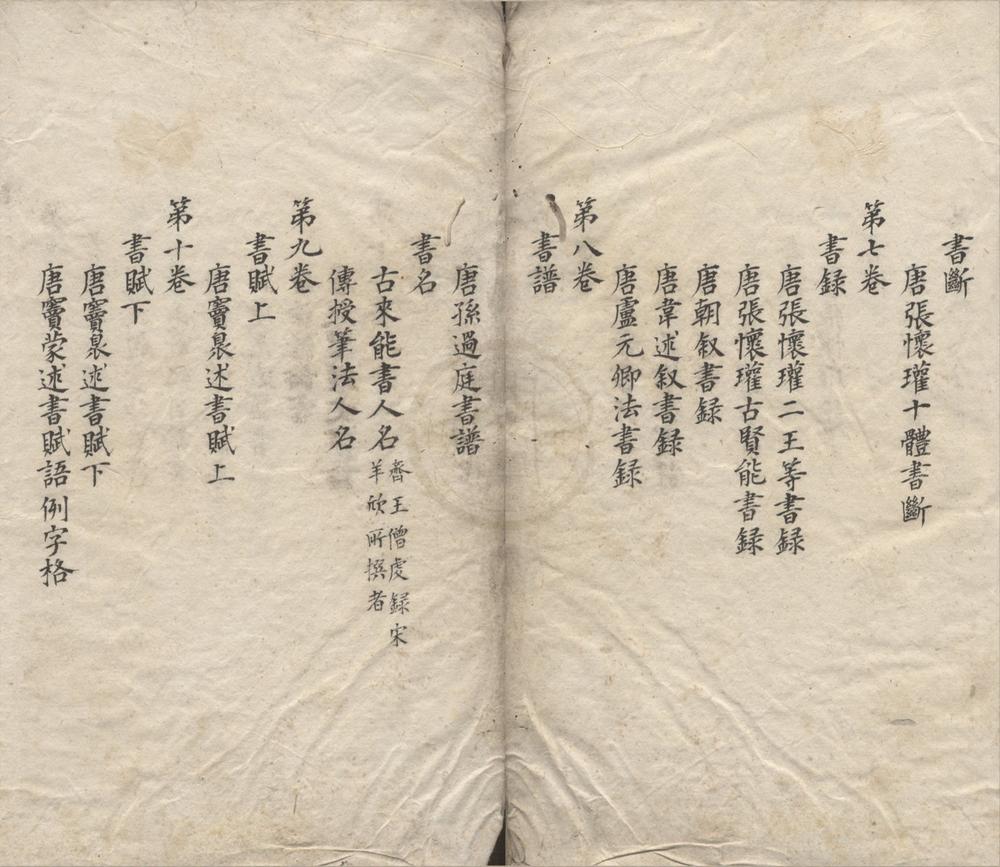 書斷
唐張懷瓘十體書斷
第七卷
書録
唐張懷瓘二王等書録
唐張懷瓘古賢能書録
唐朝叙書録
唐韋述叙書録
唐盧元卿法書録
第八卷
書譜
唐孫過庭書譜
書名
古來能書人名
齊王僧虔録宋
羊欣所撰者
傳授筆法人名
第九卷
書賦上
唐竇臮述書賦上
第十卷
書賦下
唐竇臮述書賦下
唐竇蒙述書賦語例字格